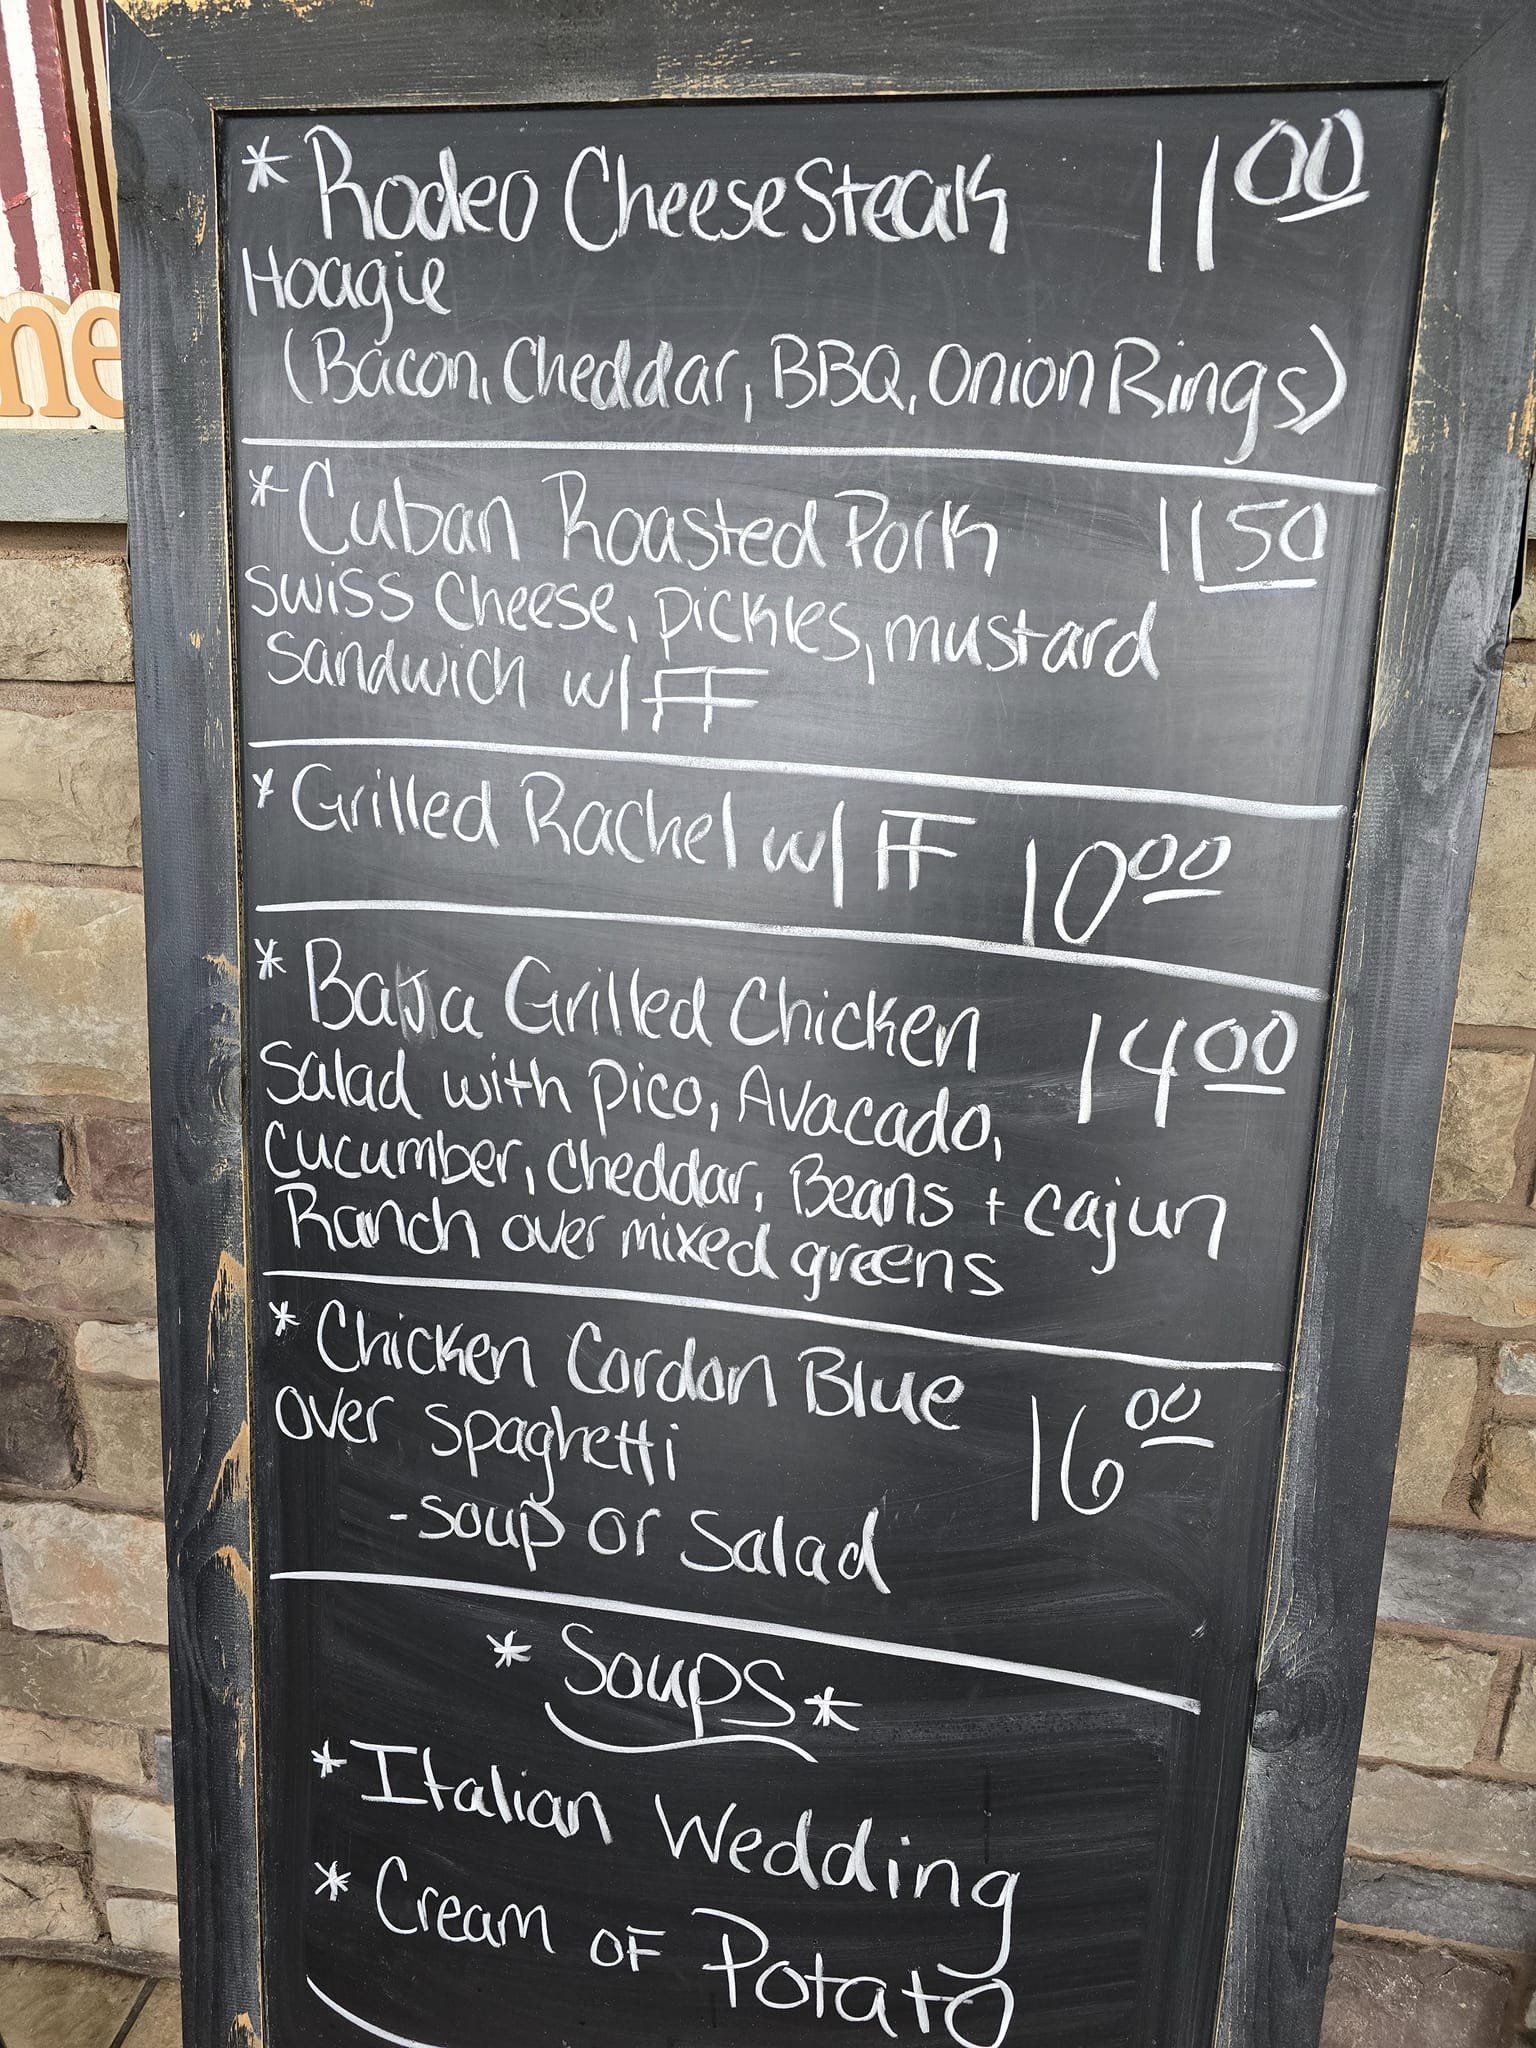 * Rodeo CheeseSteak 11.00
Hoagie
(Bacon, Cheddar, BBQ, Onion Rings)
* Cuban Roasted Pork 11.50
Swiss Cheese, pickles, mustard
Sandwich w/ FF
* Grilled Rachel w/ FF 10.00
* Baja Grilled Chicken 14.00
Salad with pico, Avacado,
cucumber, cheddar, Beans + cajun
Ranch over mixed greens
* Chicken Cordon Blue 16.00
over spaghetti
- soup or Salad
* Soups *
* Italian Wedding
* Cream of Potato
me